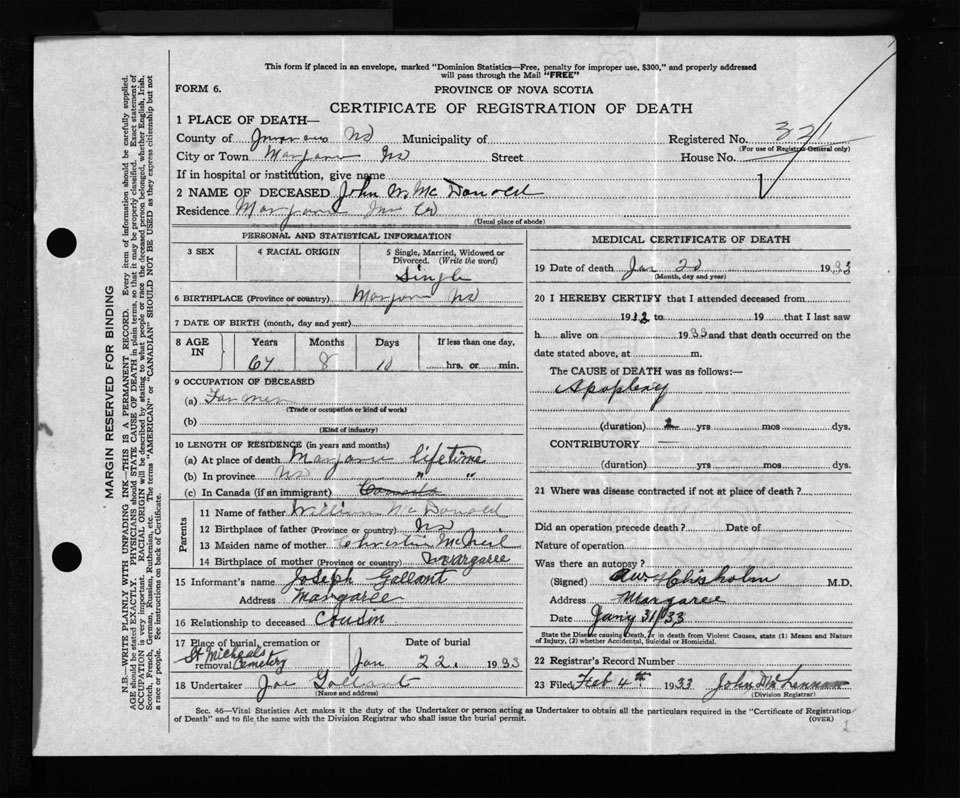 This form if placed in an envelope, marked "Dominion Statistics—Free, penalty for improper use, $300," and properly addressed
will pass through the Mail "FREE"
FORM 6.
PROVINCE OF NOVA SCOTIA
CERTIFICATE OF REGISTRATION OF DEATH
1 PLACE OF DEATH—
County of Municipality of
Registered No. 321
(For use of Registrar General only)
City or Town Street House No.
If in hospital or institution, give name
2 NAME OF DECEASED John W McDonald
Residence Co
(Usual place of abode)
PERSONAL AND STATISTICAL INFORMATION
3 SEX
4 RACIAL ORIGIN
5 Single, Married, Widowed or
Divorced. (Write the word)
Single
6 BIRTHPLACE (Province or country) NS
7 DATE OF BIRTH (month, day and year)
8 AGE IN
Years Months Days If less than one day,
67 8 10 hrs. or min.
9 OCCUPATION OF DECEASED
(a) Farmer
(Trade or occupation or kind of work)
(b)
(Kind of industry)
10 LENGTH OF RESIDENCE (in years and months)
(a) At place of death lifetime
(b) In province NS " "
(c) In Canada (if an immigrant) Canada
Parents
11 Name of father William McDonald
12 Birthplace of father (Province or country) NS
13 Maiden name of mother McNeil
14 Birthplace of mother (Province or country) Margaree
15 Informant's name Joseph Gallant
Address Margaree
16 Relationship to deceased Cousin
17 Place of burial, cremation or
removal Date of burial
St Micheals
Cemetery Jan 22. 1933
18 Undertaker Joe Gallant
(Name and address)
MEDICAL CERTIFICATE OF DEATH
19 Date of death Jan 20 1933
(Month, day and year)
20 I HEREBY CERTIFY that I attended deceased from
1932 to 19 that I last saw
h alive on 1933 and that death occurred on the
date stated above, at m.
The CAUSE of DEATH was as follows:—
Apoplexy
(duration) 2 yrs mos dys.
CONTRIBUTORY
(duration) yrs mos dys.
21 Where was disease contracted if not at place of death?
Did an operation precede death? Date of
Nature of operation
Was there an autopsy?
(Signed) Chisholm M.D.
Address Margaree
Date Jany 31/33
State the Disease causing Death, or in death from Violent Causes, state (1) Means and Nature
of Injury, (2) whether Accidental, Suicidal or Homicidal.
22 Registrar's Record Number
23 Filed Feb 4th 1933 John D McLennan
(Division Registrar)
Sec. 46—Vital Statistics Act makes it the duty of the Undertaker or person acting as Undertaker to obtain all the particulars required in the "Certificate of Registration
of Death" and to file the same with the Division Registrar who shall issue the burial permit.
(OVER)
1
MARGIN RESERVED FOR BINDING
N.B.—WRITE PLAINLY WITH UNFADING INK—THIS IS A PERMANENT RECORD. Every item of information should be carefully supplied.
AGE should be stated EXACTLY. PHYSICIANS should STATE CAUSE OF DEATH in plain terms, so that it may be properly classified. Exact statement of
OCCUPATION is very important. RACIAL ORIGIN will be described by stating to what people or race the deceased person belonged, whether English, Irish,
Scotch, French, German, Russian, Ruthenian, etc. The terms "AMERICAN" or "CANADIAN" SHOULD NOT BE USED as they express citizenship but not
a race or people. See instructions on back of Certificate.